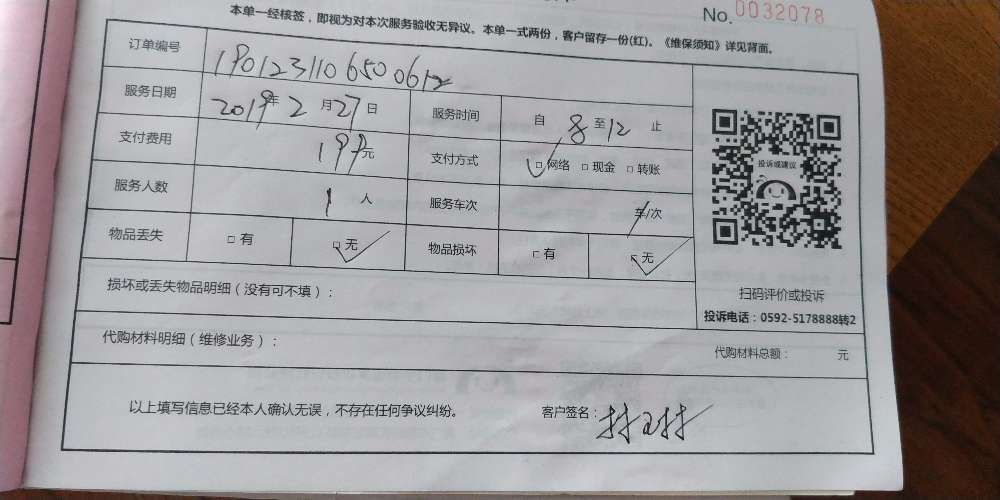 No. 0032078
本单一经核签，即视为对本次服务验收无异议。本单一式两份，客户留存一份(红)。《维保须知》详见背面。
订单编号 1901231106500612
服务日期 2019年 2 月 27 日 服务时间 自 8 至 12 止
支付费用 199元 支付方式 □ 网络 □ 现金 □ 转账
服务人数 1 人 服务车次 车/次
物品丢失 □ 有 □ 无 物品损坏 □ 有 □ 无
投诉或建议
扫码评价或投诉
投诉电话：0592-5178888转2
损坏或丢失物品明细（没有可不填）：
代购材料明细（维修业务）： 代购材料总额： 元
以上填写信息已经本人确认无误，不存在任何争议纠纷。 客户签名：